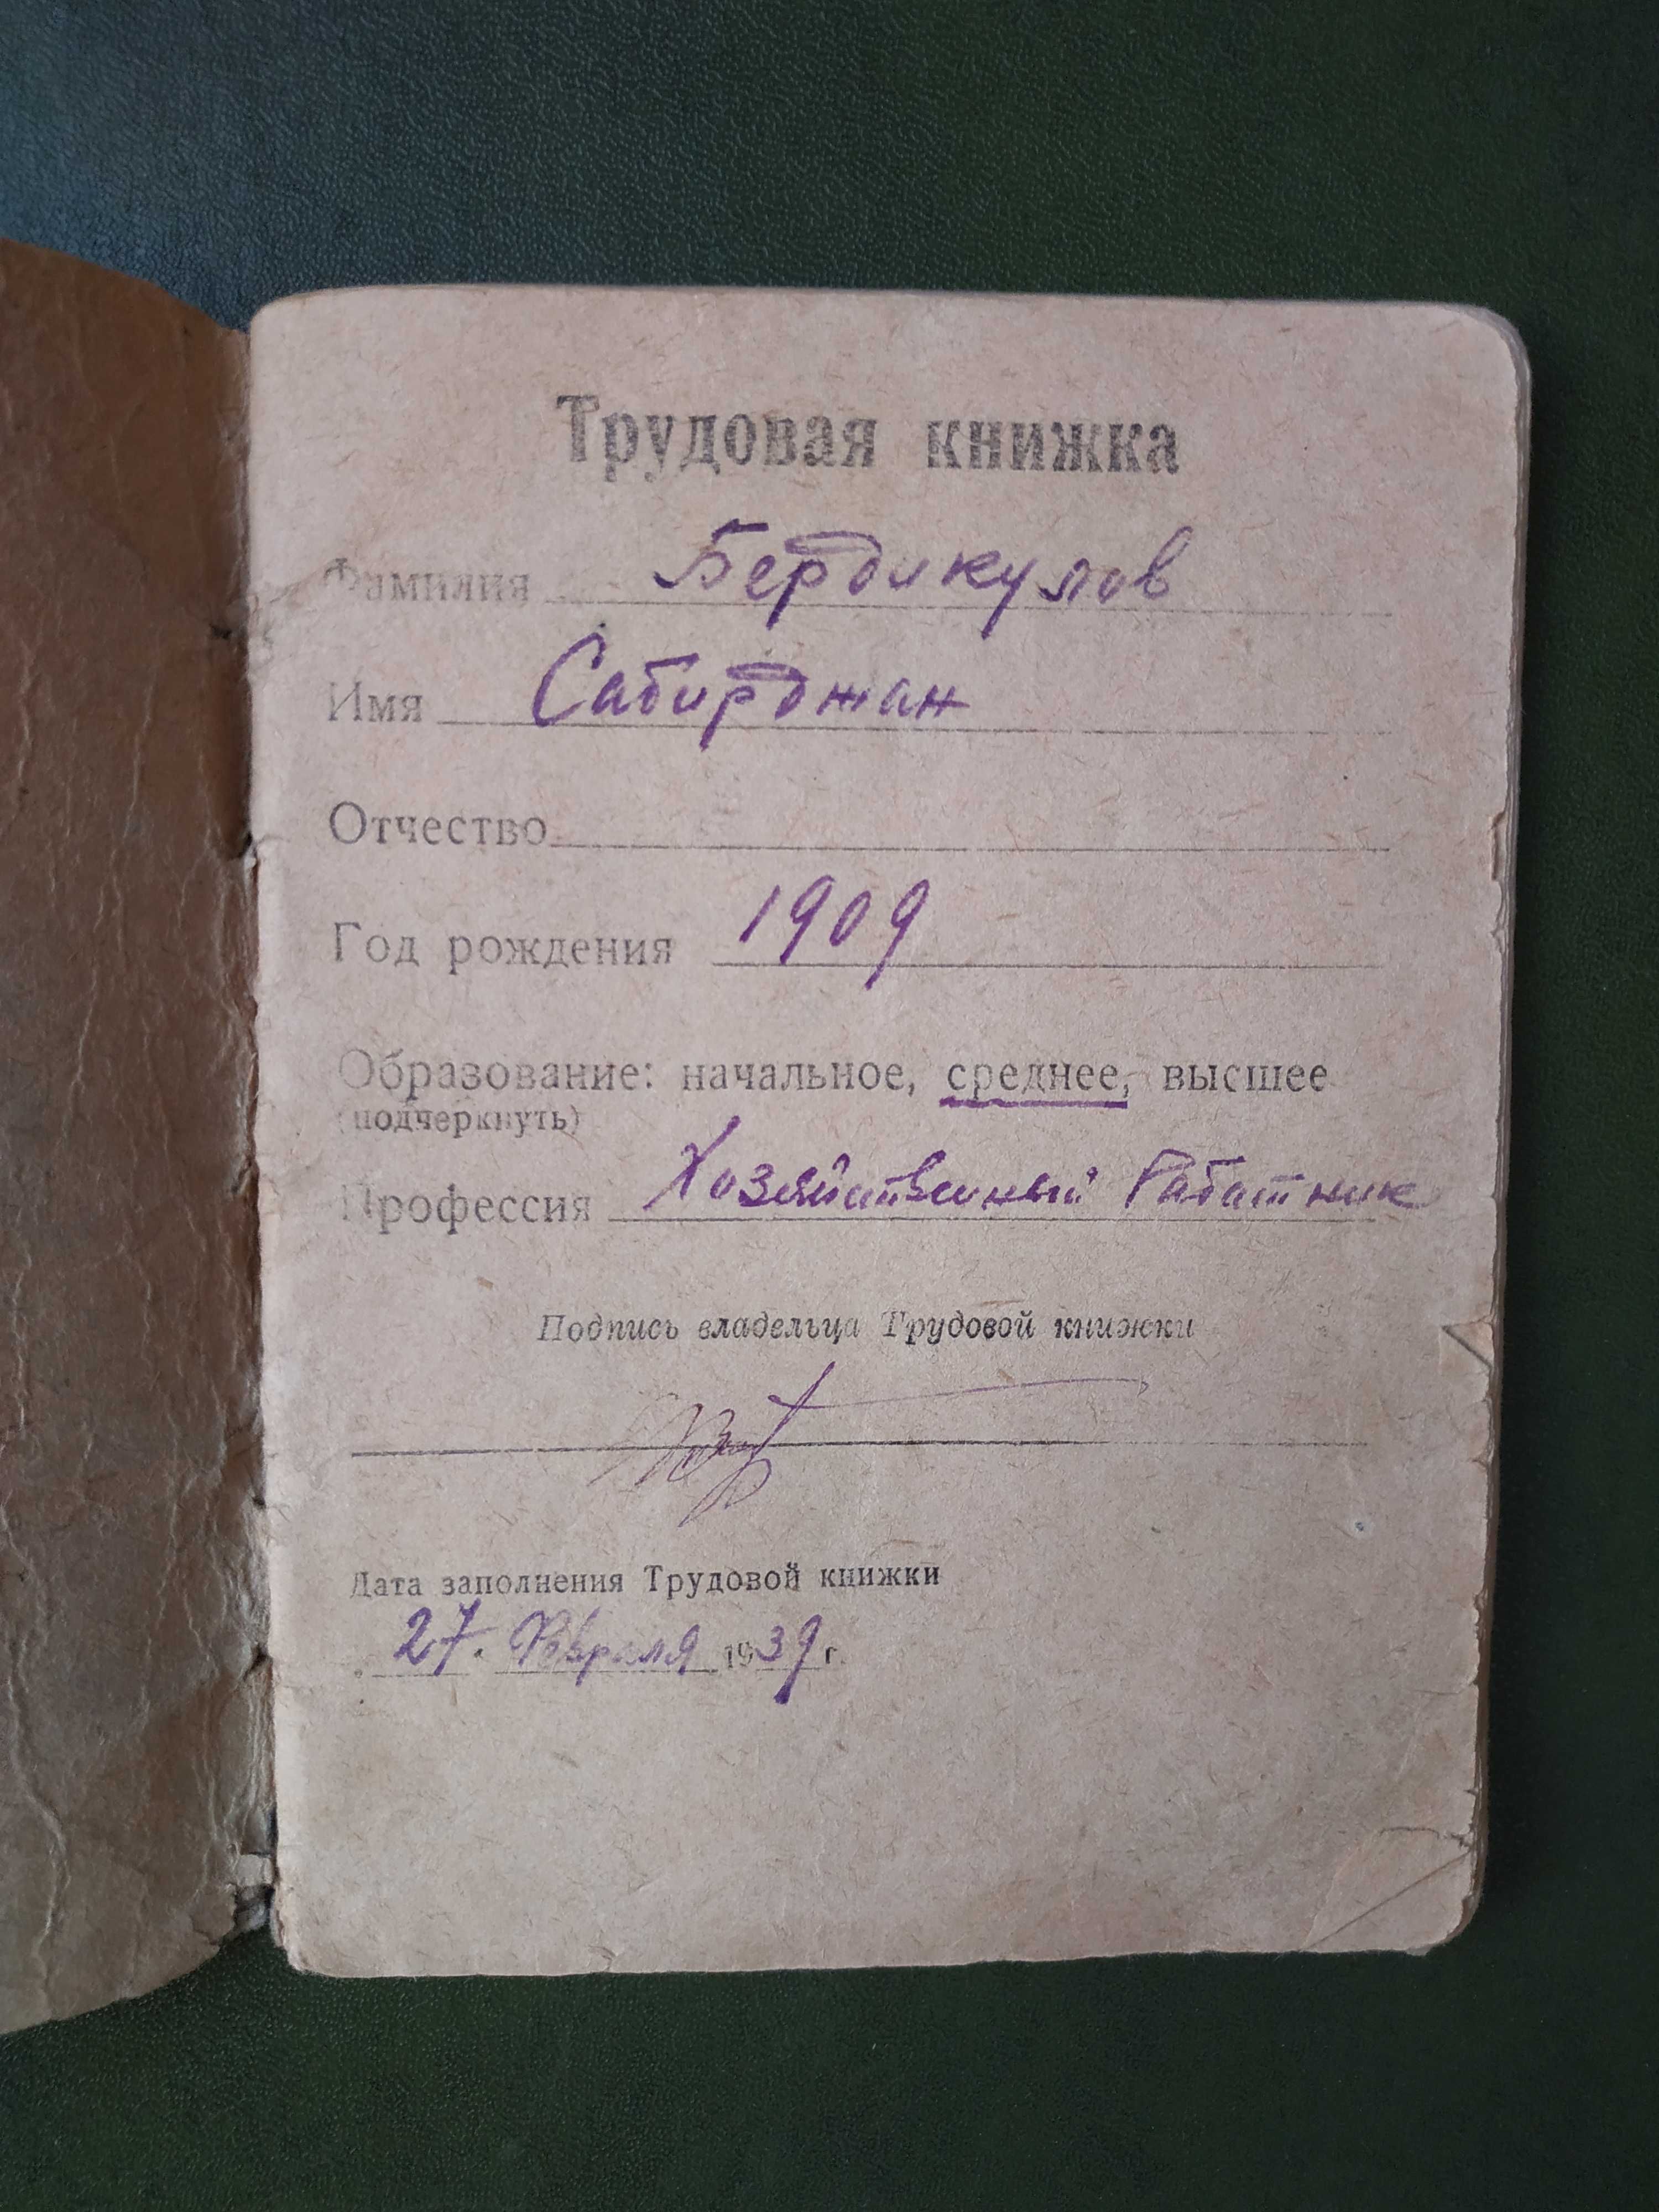 Трудовая книжка
Фамилия Бердикулов
Имя Сабирджан
Отчество
Год рождения 1909
Образование: начальное, среднее, высшее
(подчеркнуть)
Профессия Хозяйственный Работник
Подпись владельца Трудовой книжки
Дата заполнения Трудовой книжки
27. Февраля 1939 г.